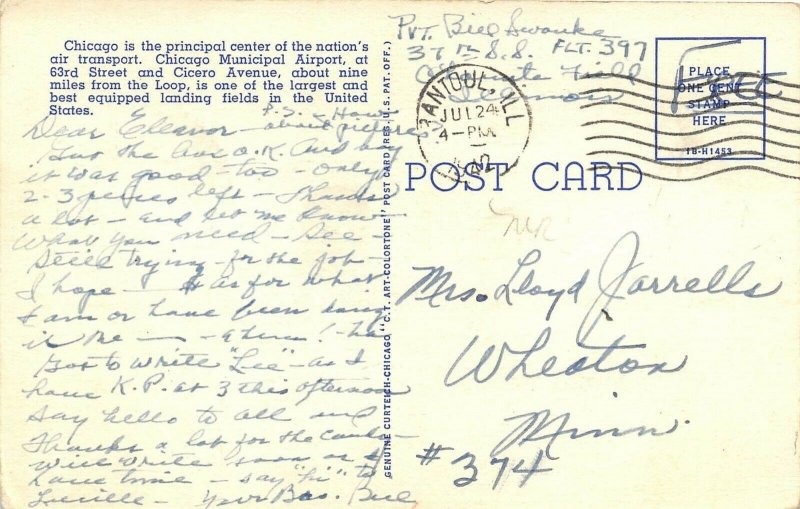 Chicago is the principal center of the nation's
air transport. Chicago Municipal Airport, at
63rd Street and Cicero Avenue, about nine
miles from the Loop, is one of the largest and
best equipped landing fields in the United
States.
P.S. - How
about pictures
Dear Eleanor -
Got the box O.K. And boy
it was good - too - only
2-3 pieces left - Thanks
a lot - and let me know
what you need - See -
Still trying - for the job -
I hope - As for what
I am or have been doing
in the - ahem! - ha
Got to write "Lee" - as I
have K.P. at 3 this afternoon
Say hello to all and
Thanks a lot for the
will write soon as I
have time - say "hi" to
Lucille - Your Bro. Bill
GENUINE CURTEICH-CHICAGO "C.T. ART-COLORTONE" POST CARD (REG. U.S. PAT. OFF.)
Pvt. Bill Swanke
37th S.S. FLT. 397
Chanute Field
Illinois
RANTOUL, ILL.
JUL 24
4-PM
1942
Free
PLACE
ONE CENT
STAMP
HERE
1B-H1453
POST CARD
Mrs. Lloyd Jarrells
Wheaton
Minn.
#374